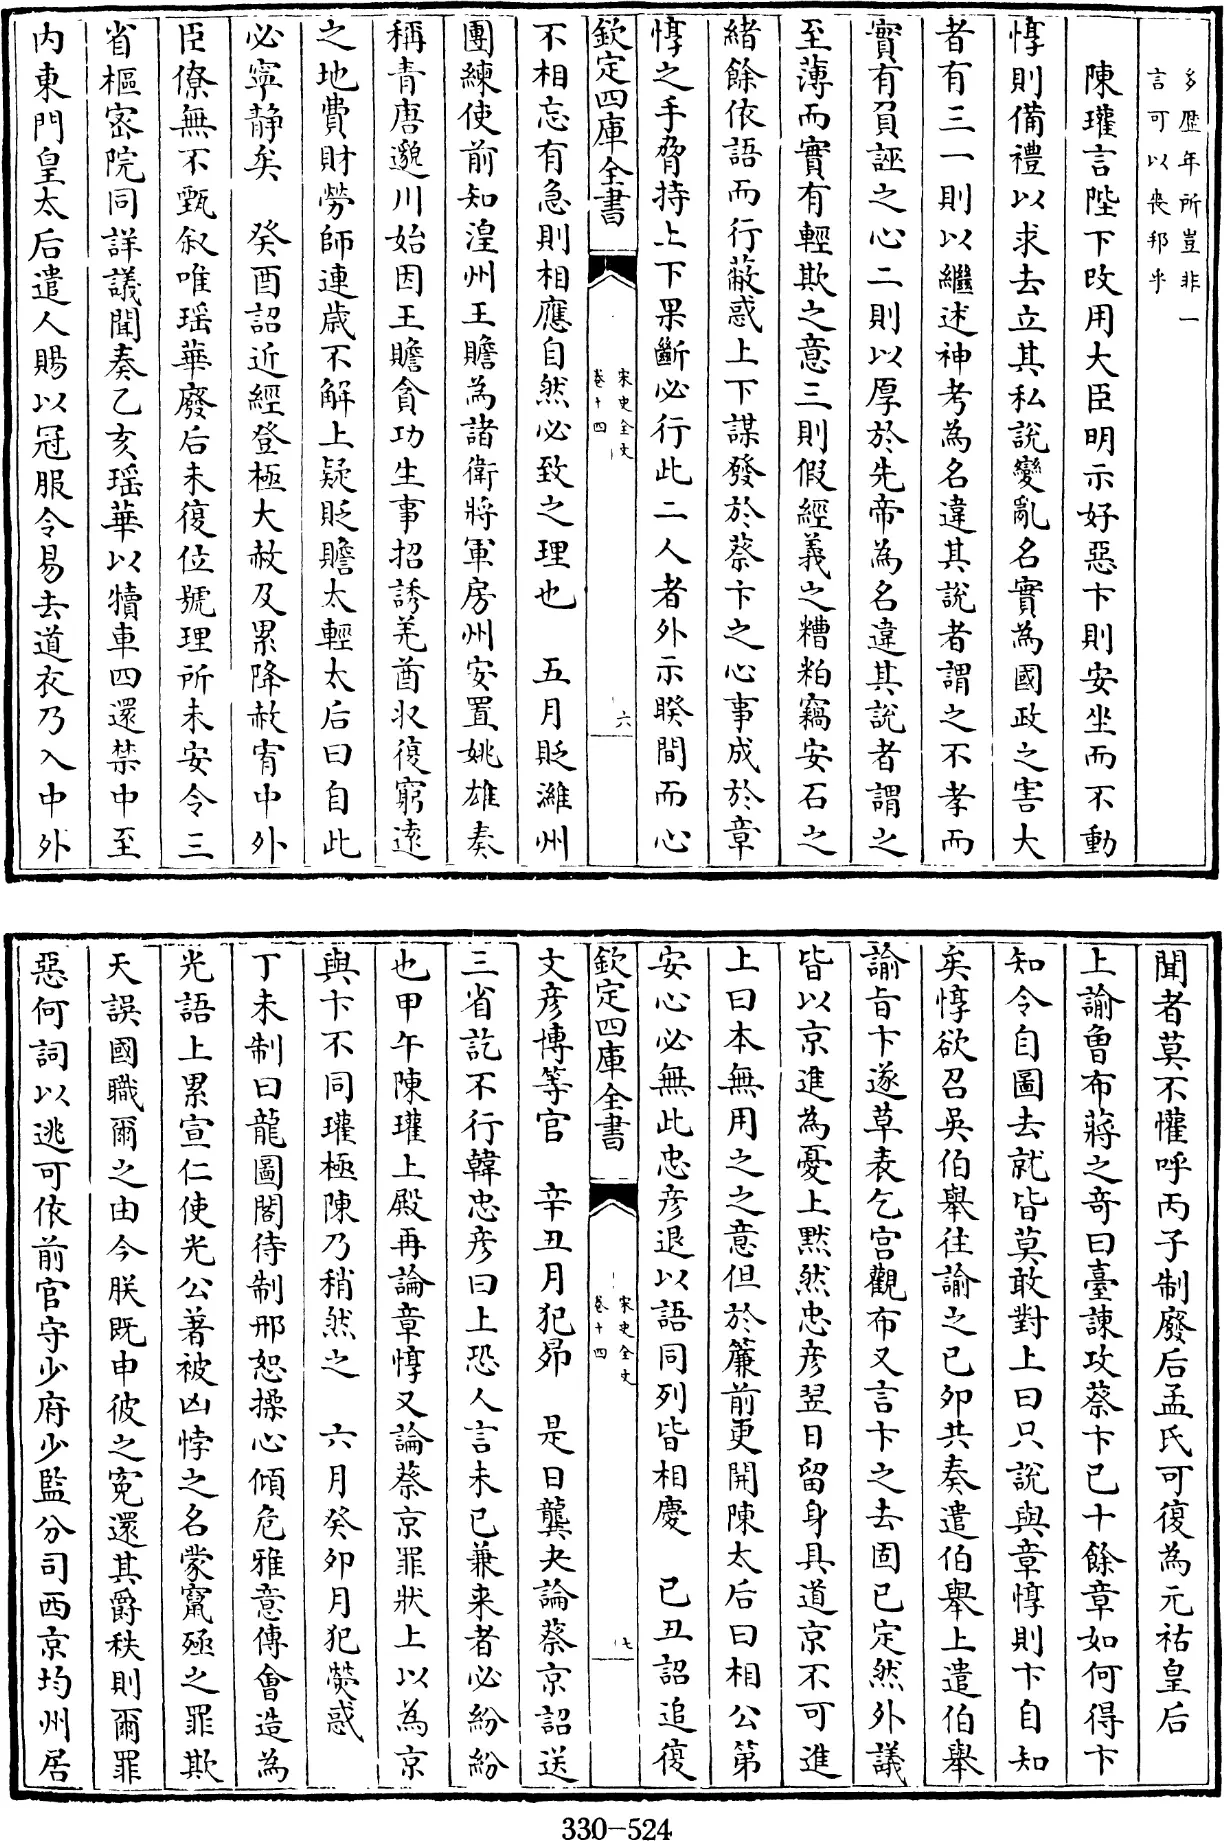 多歴年所豈非一
言可以喪邦乎
陳瓘言陛下改用大臣明示好惡卞則安坐而不動
惇則備禮以求去立其私說變亂名實為國政之害大
者有三一則以繼述神考為名違其說者謂之不孝而
實有負誣之心二則以厚於先帝為名違其說者謂之
至薄而實有輕欺之意三則假經義之糟粕竊安石之
緒餘依語而行蔽惑上下謀發於蔡卞之心事成於章
惇之手脅持上下果斷必行此二人者外示睽間而心
欽定四庫全書
宋史全文
卷十四
六
不相忘有急則相應自然必致之理也　五月貶濰州
團練使前知湟州王贍為諸衛將軍房州安置姚雄奏
稱青唐邈川始因王贍貪功生事招誘羌酋収復窮遠
之地費財勞師連歳不解上疑貶贍太輕太后曰自此
必寧静矣　癸酉詔近經登極大赦及累降赦宥中外
臣僚無不甄叙唯瑶華廢后未復位號理所未安令三
省樞宻院同詳議聞奏乙亥瑶華以犢車四還禁中至
内東門皇太后遣人賜以冠服令易去道衣乃入中外
聞者莫不懽呼丙子制廢后孟氏可復為元祐皇后
上諭曽布蔣之竒曰臺諫攻蔡卞已十餘章如何得卞
知令自圖去就皆莫敢對上曰只說與章惇則卞自知
矣惇欲召吳伯舉往諭之已卯共奏遣伯舉上遣伯舉
諭旨卞遂草表乞宫觀布又言卞之去固已定然外議
皆以京進為憂上黙然忠彦翌日留身具道京不可進
上曰本無用之之意但於簾前更開陳太后曰相公第
安心必無此忠彦退以語同列皆相慶　已丑詔追復
欽定四庫全書
宋史全文
卷十四
七
文彦博等官　辛丑月犯昴　是日龔夬論蔡京詔送
三省訖不行韓忠彦曰上恐人言未已兼来者必紛紛
也甲午陳瓘上殿再論章惇又論蔡京罪狀上以為京
與卞不同瓘極陳乃稍然之　六月癸卯月犯熒惑
丁未制曰龍圖閣待制邢恕操心傾危雅意傅會造為
光語上累宣仁使光公著被凶悖之名蒙竄殛之罪欺
天誤國職爾之由今朕既申彼之寃還其爵秩則爾罪
惡何詞以逃可依前官守少府少監分司西京均州居
330-524